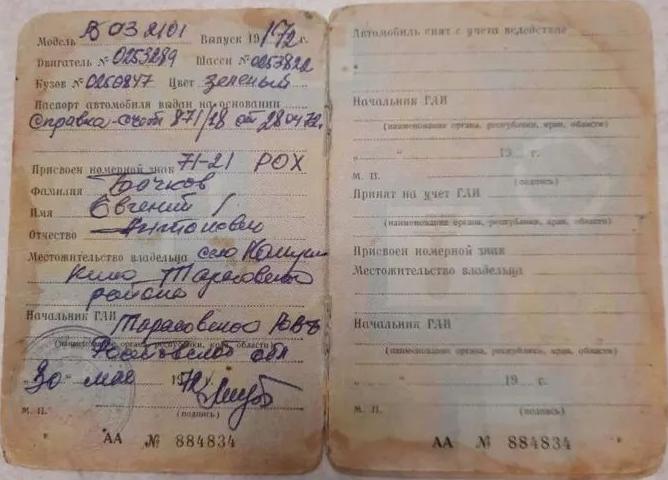 Модель ВАЗ 2101 Выпуск 1972 г.
Двигатель № 0253289 Шасси № 0253822
Кузов № 0250847 Цвет зеленый
Паспорт автомобиля выдан на основании
Справка-счет 871/18 от 280472г.
Присвоен номерной знак 71-21 РОХ
Фамилия Бочков
Имя Евгений
Отчество Антонович
Местожительство владельца село
Тарасовского
района
Начальник ГАИ Тарасовского РОВД
(наименование органа, республики, края, области)
Ростовской обл
„30" мая 1972
М. П. (подпись)
АА № 884834
Автомобиль снят с учета вследствие
Начальник ГАИ
(наименование органа, республики, края, области)
„ " 19 г.
М. П. (подпись)
Принят на учет ГАИ
(наименование органа, республики, края, области)
Присвоен номерной знак
Местожительство владельца
Начальник ГАИ
(наименование органа, республики, края, области)
„ " 19 г.
М. П. (подпись)
АА № 884834